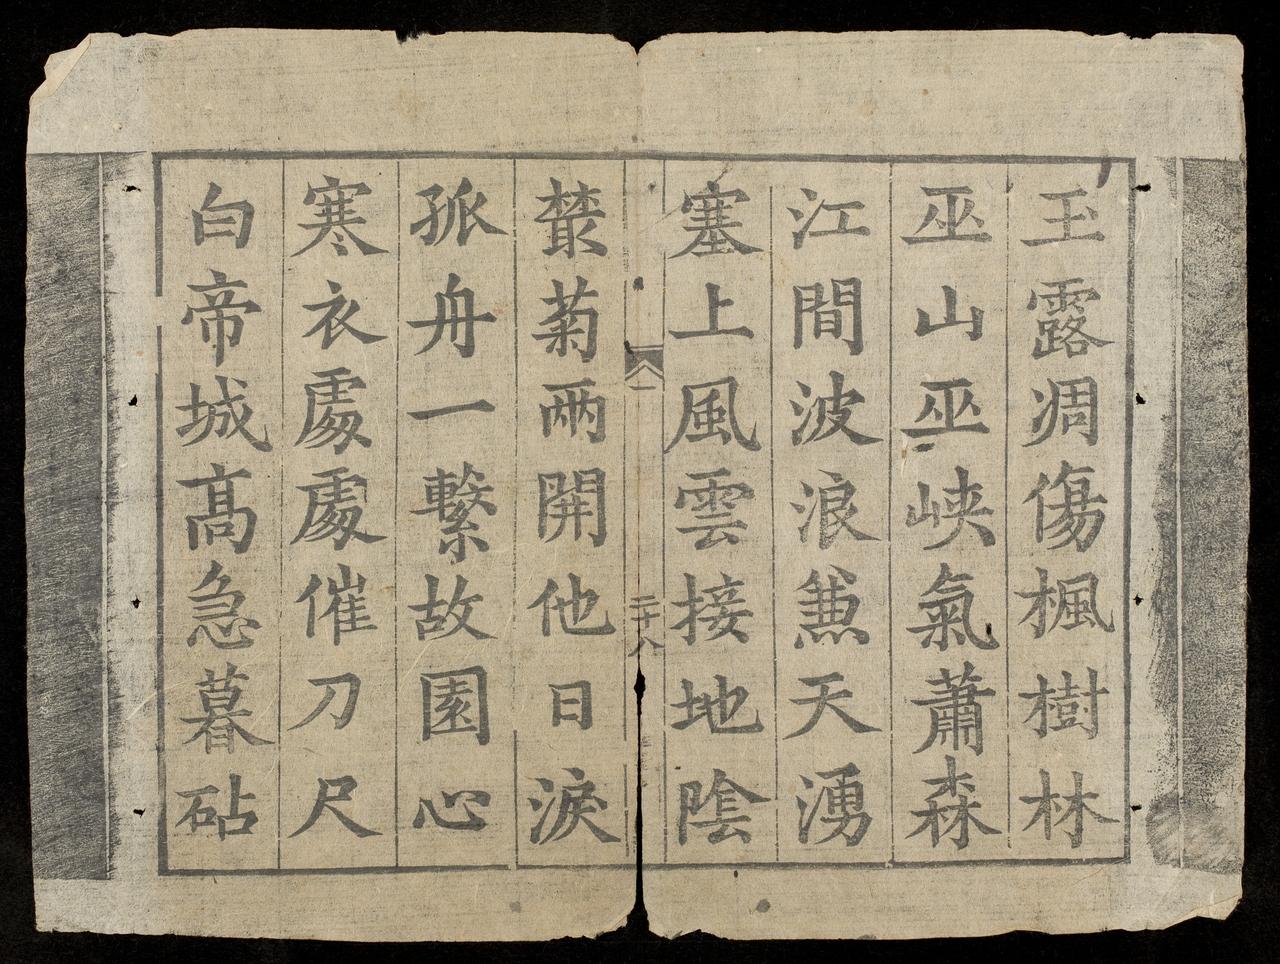 玉露凋傷楓樹林
巫山巫峽氣蕭森
江間波浪兼天湧
塞上風雲接地陰
二十八
叢菊兩開他日淚
孤舟一繫故園心
寒衣處處催刀尺
白帝城髙急暮砧